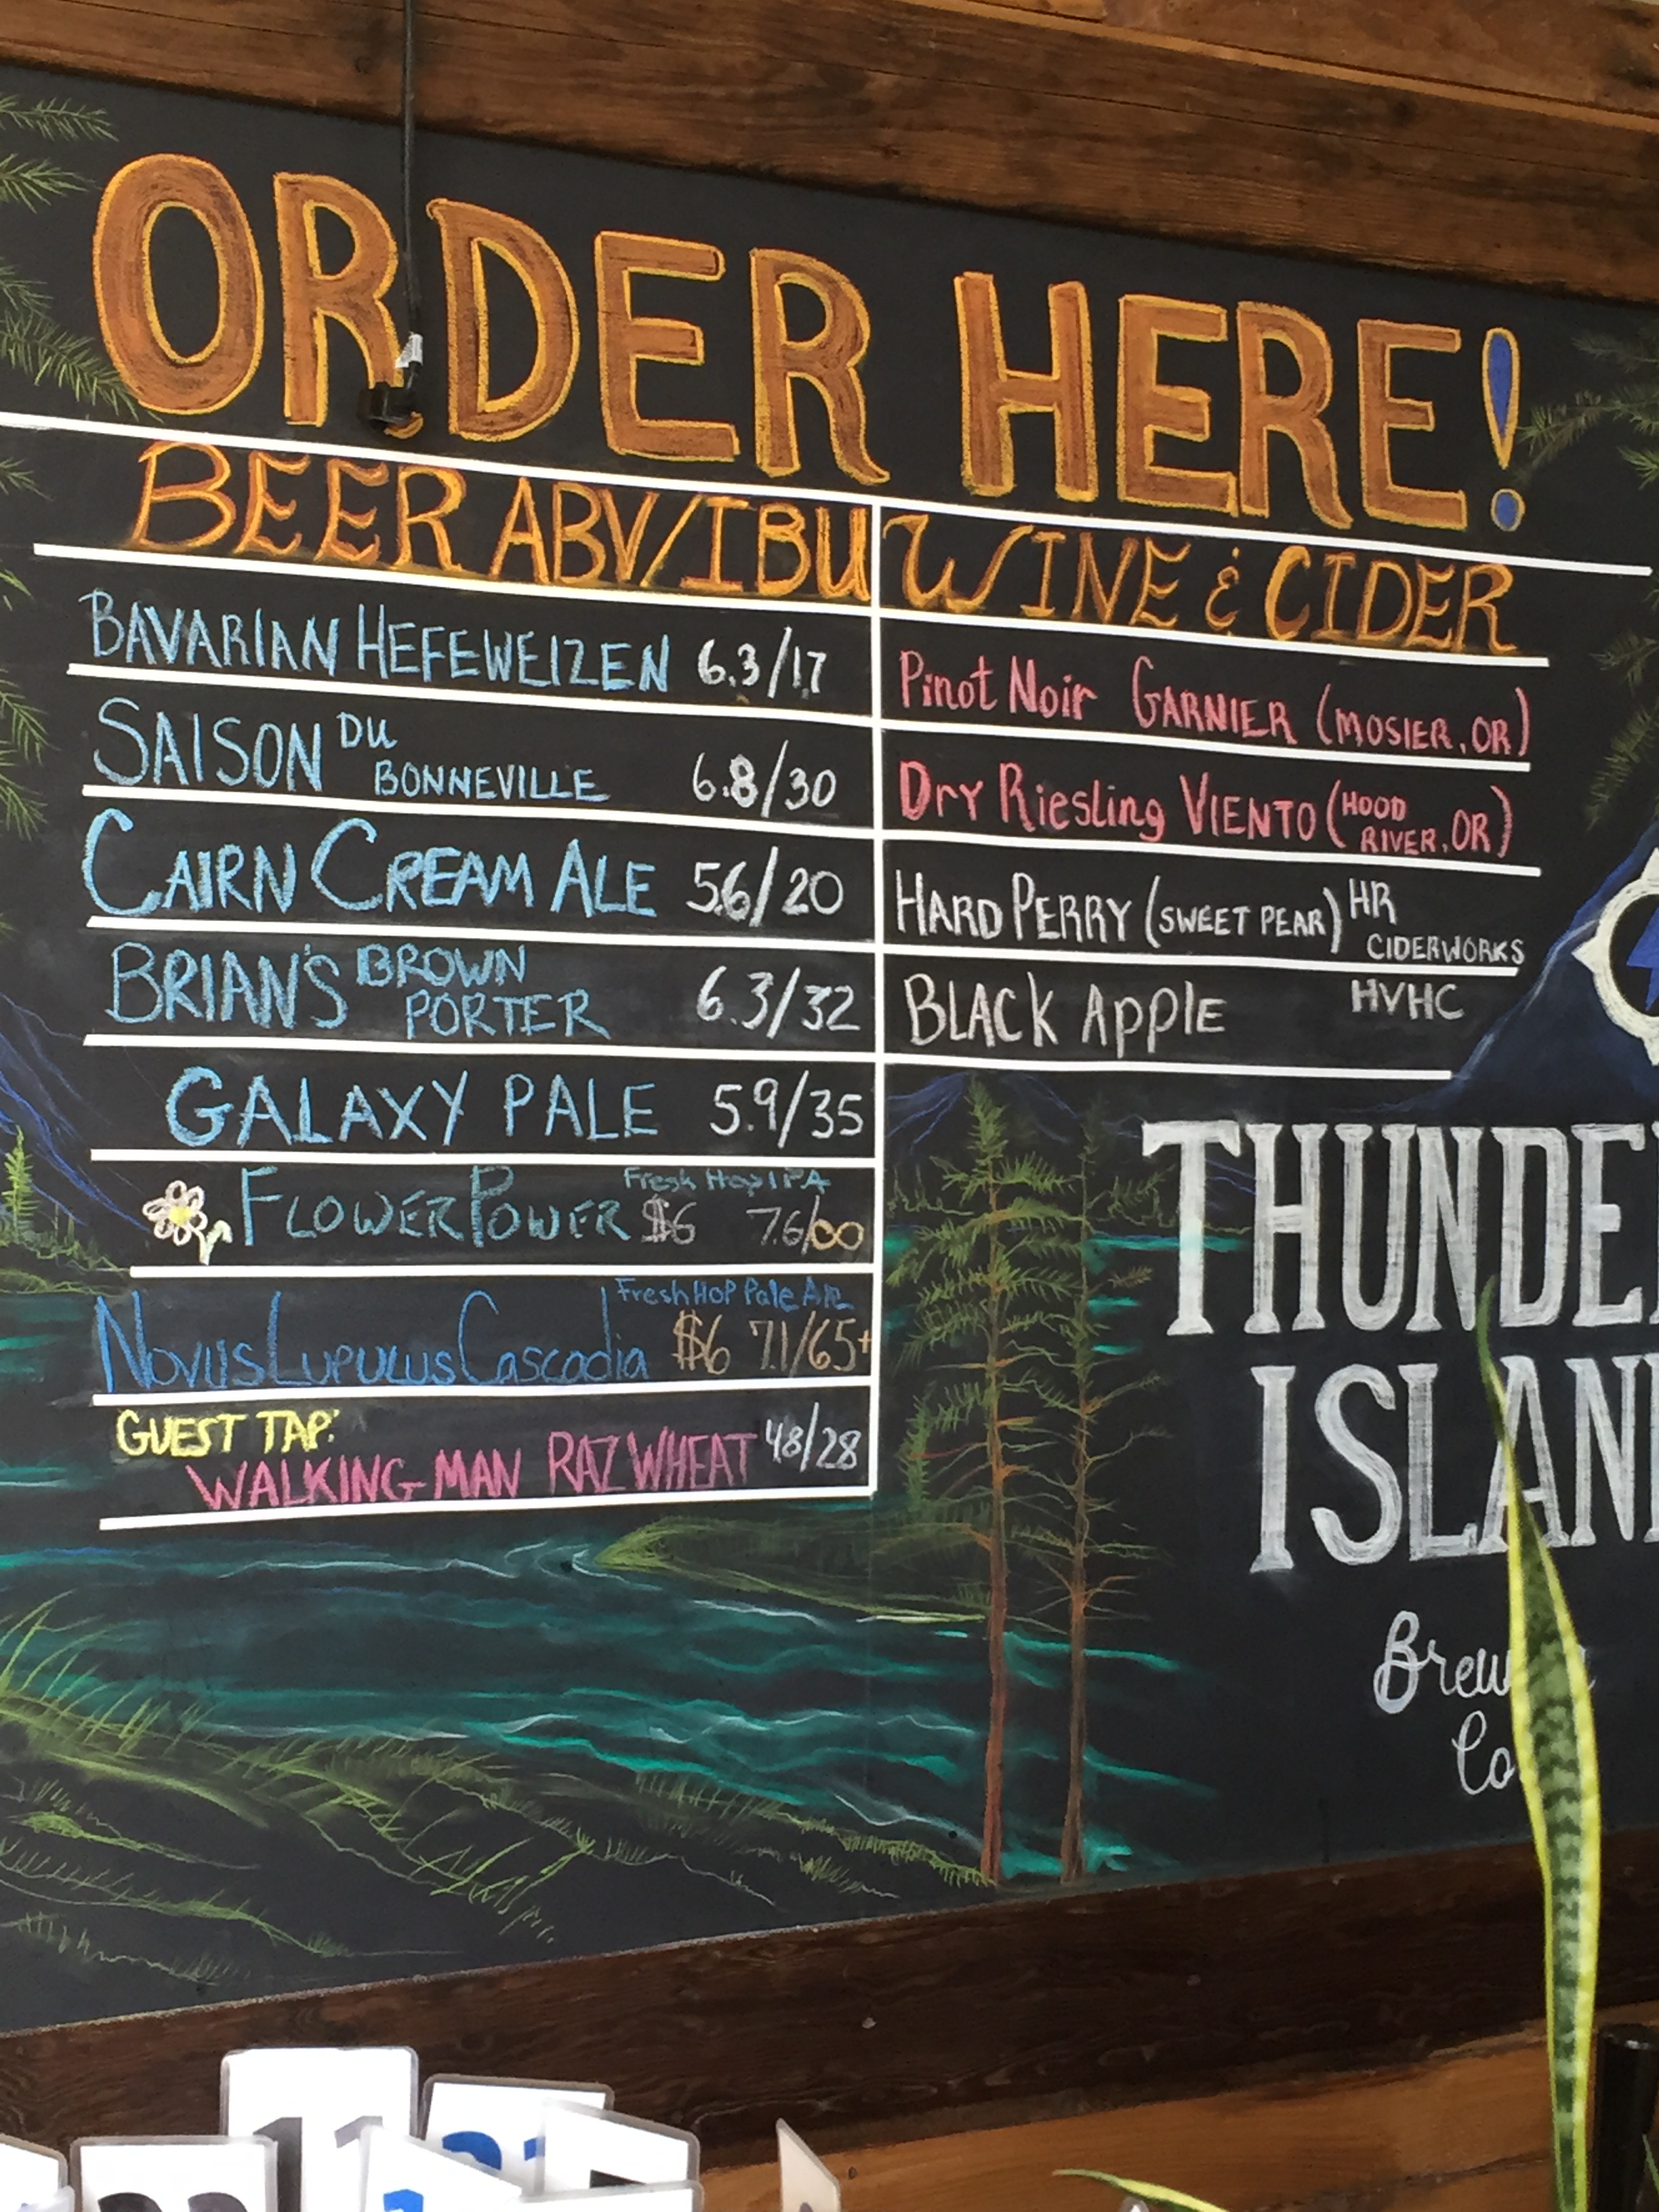 ORDER HERE!
BEER ABV/IBU
BAVARIAN HEFEWEIZEN 6.3/17
SAISON DU BONNEVILLE 6.8/30
CAIRN CREAM ALE 5.6/20
BRIAN'S BROWN PORTER 6.3/32
GALAXY PALE 5.9/35
FLOWER POWER Fresh Hop IPA $6 7.6/∞
Novus Lupulus Cascadia Fresh Hop Pale Ale $6 7.1/65+
GUEST TAP:
WALKING MAN RAZ WHEAT 4.8/28
WINE & CIDER
Pinot Noir GARNIER (MOSIER, OR)
Dry Riesling VIENTO (HOOD RIVER, OR)
HARD PERRY (SWEET PEAR) HR CIDERWORKS
BLACK APPlE HVHC
THUNDE
ISLAN
Brew
Co
11